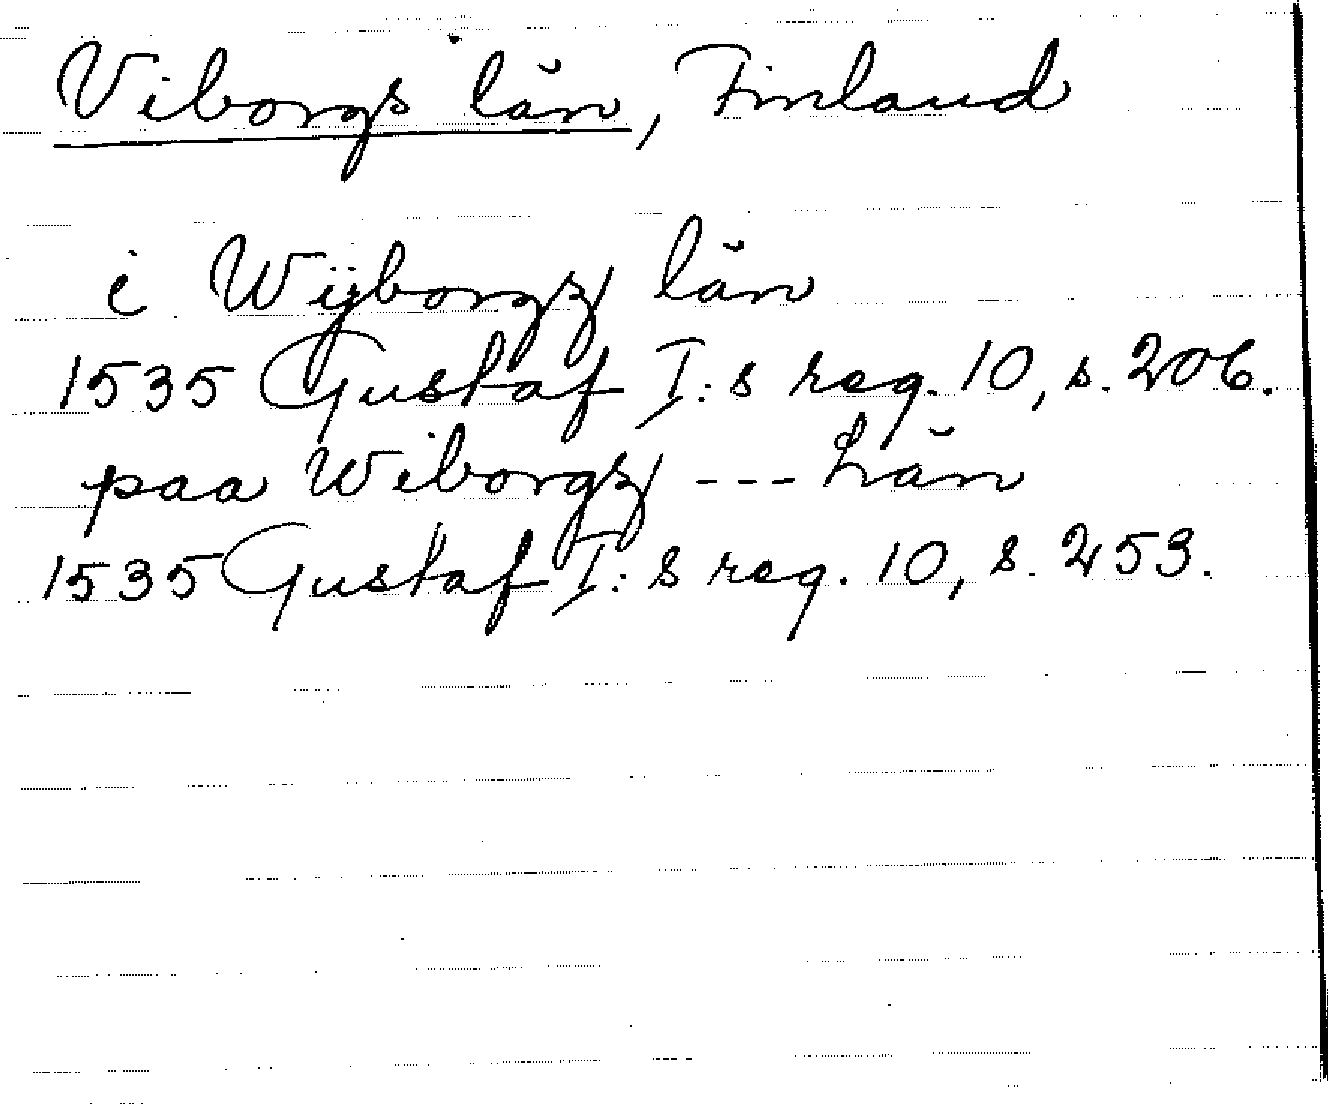 Viborgs län, Finland
i Wÿborgz län
1535 Gustaf I:s reg. 10, s. 206.
paa Wiborgz --- Län
1535 Gustaf I:s reg. 10, s. 253.